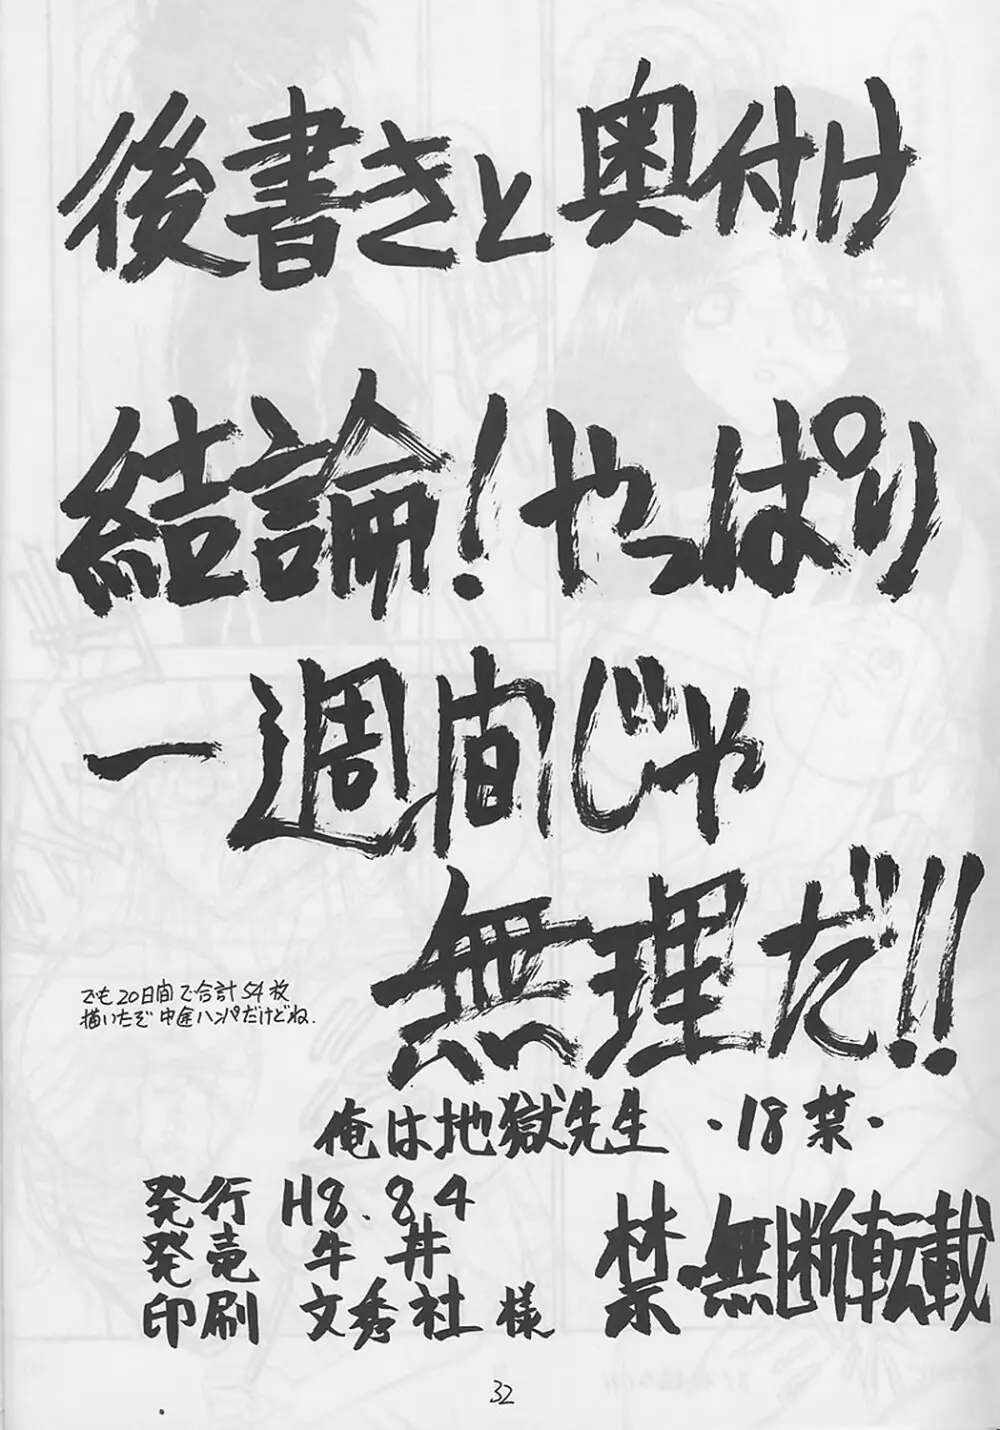 後書きと奥付け
結論!やっぱり
一週間じゃ
無理だ!!
でも20日間で合計54枚
描いたぞ中途ハンパだけどね.
俺は地獄先生 ・18禁・
発行 H8.8.4
発売 牛丼
印刷 文秀社様
禁・無断転載
32